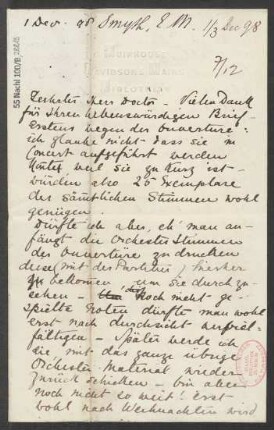 1 Dec. 98 Smyth, E. M. 1/3 Dec 98
55 Nachl 100/B
7/12
Geehrter Herr Doctor – Vielen Dank
für Ihren liebenswürdigen Brief.
Erstens wegen der Ouverture:
ich glaube nicht dass sie im
Concert aufgeführt werden
könnte, weil sie zu kurz ist –
würden also 25 Exemplare
der sämtlichen Stimmen wohl
genügen.
Dürfte ich aber, eh' man an-
fängt die Orchester Stimmen
der Ouverture zu drucken
diese mit der Partitur hierher
zu bekommen, um sie durch zu
sehen – Noch nicht ge-
spielte Noten dürfte man wohl
erst nach Durchsicht verviel-
fältigen – Später werde ich
sie mit das ganze übrige
Orchester Material wieder
zurück schicken – bin aber
noch nicht so weit! Erst
wohl nach Weihnachten wird